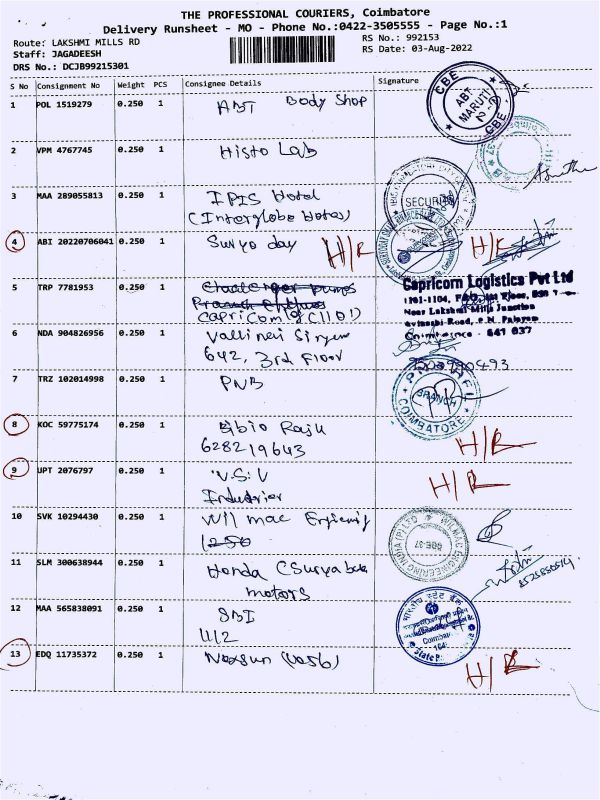 THE PROFESSIONAL COURIERS, Coimbatore
Delivery Runsheet - MO - Phone No.:0422-3505555 - Page No.:1
Route: LAKSHMI MILLS RD
RS No.: 992153
Staff: JAGADEESH
RS Date: 03-Aug-2022
DRS No.: DCJB99215301
S No Consignment No Weight PCS Consignee Details Signature
1 POL 1519279 0.250 1 ABT Body Shop
CBE ABT MARUTI CBE
2 VPM 4767745 0.250 1 Histo Lab
3 MAA 289055813 0.250 1 IPIS Hotel
(Interglobe Hotes)
SECURITY
4 ABI 20220706041 0.250 1 Suryo day H/R H/R
5 TRP 7781953 0.250 1
Capricom (gC1101)
Capricorn Logistics Pvt Ltd
Near Lakshmi Mills Junction
Avinashi Road, P.N. Palayam
Coimbatore - 641 037
6 NDA 904826956 0.250 1 Vallinai
642, 3rd Floor
7 TRZ 102014998 0.250 1 PNB
BRANCH
COIMBATORE
8 KOC 59775174 0.250 1 Raju
628219643
H/R
9 UPT 2076797 0.250 1 V.S.V
Industrier
H/R
10 SVK 10294430 0.250 1 Wil mac
1250
WILMAC ENGINEERING INDIA (P) LTD
CBE-37
11 SLM 300638944 0.250 1 Honda (Surya
motors
12 MAA 565838091 0.250 1 SBI
1112
भारतीय स्टेट बैंक
State
13 EDQ 11735372 0.250 1 Nexsun (Va56)
H/R